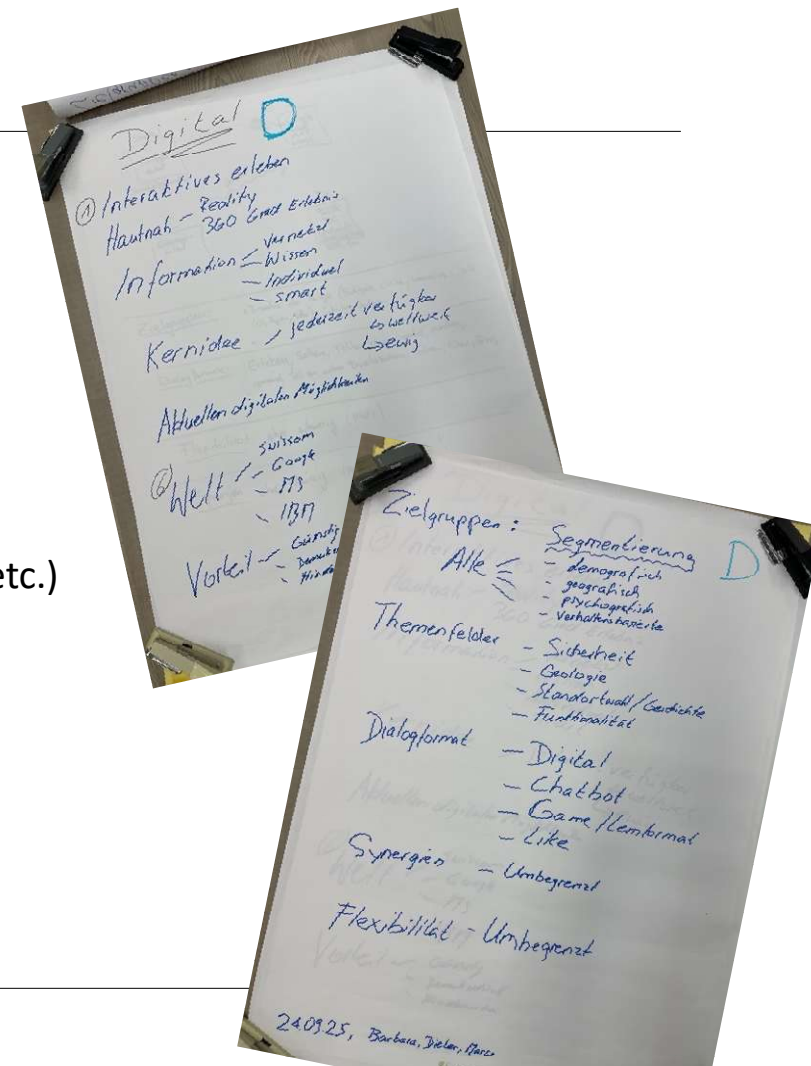 Digital D
① Interaktives erleben
Hautnah – Reality
360 Grad Erlebnis
Information – vernetzt
– Wissen
– Individuel
– smart
Kernidee – jederzeit verfügbar
↳ weltweit
↳ ewig
Aktuellen digitalen Möglichkeiten
⑥ Welt – Swisscom
– Google
– MS
– IBM
Vorteil – Günstig
etc.)
Zielgruppen: Segmentierung D
Alle – demografisch
– geografisch
– psychografisch
– verhaltensbasierte
Themenfelder – Sicherheit
– Geologie
– Standortwahl / Geschichte
– Funktionalität
Dialogformat – Digital
– Chatbot
– Game / Lernformat
– Like
Synergien – Umbegrenzt
Flexibilität – Umbegrenzt
24.09.25, Barbara, Dieter, Marco